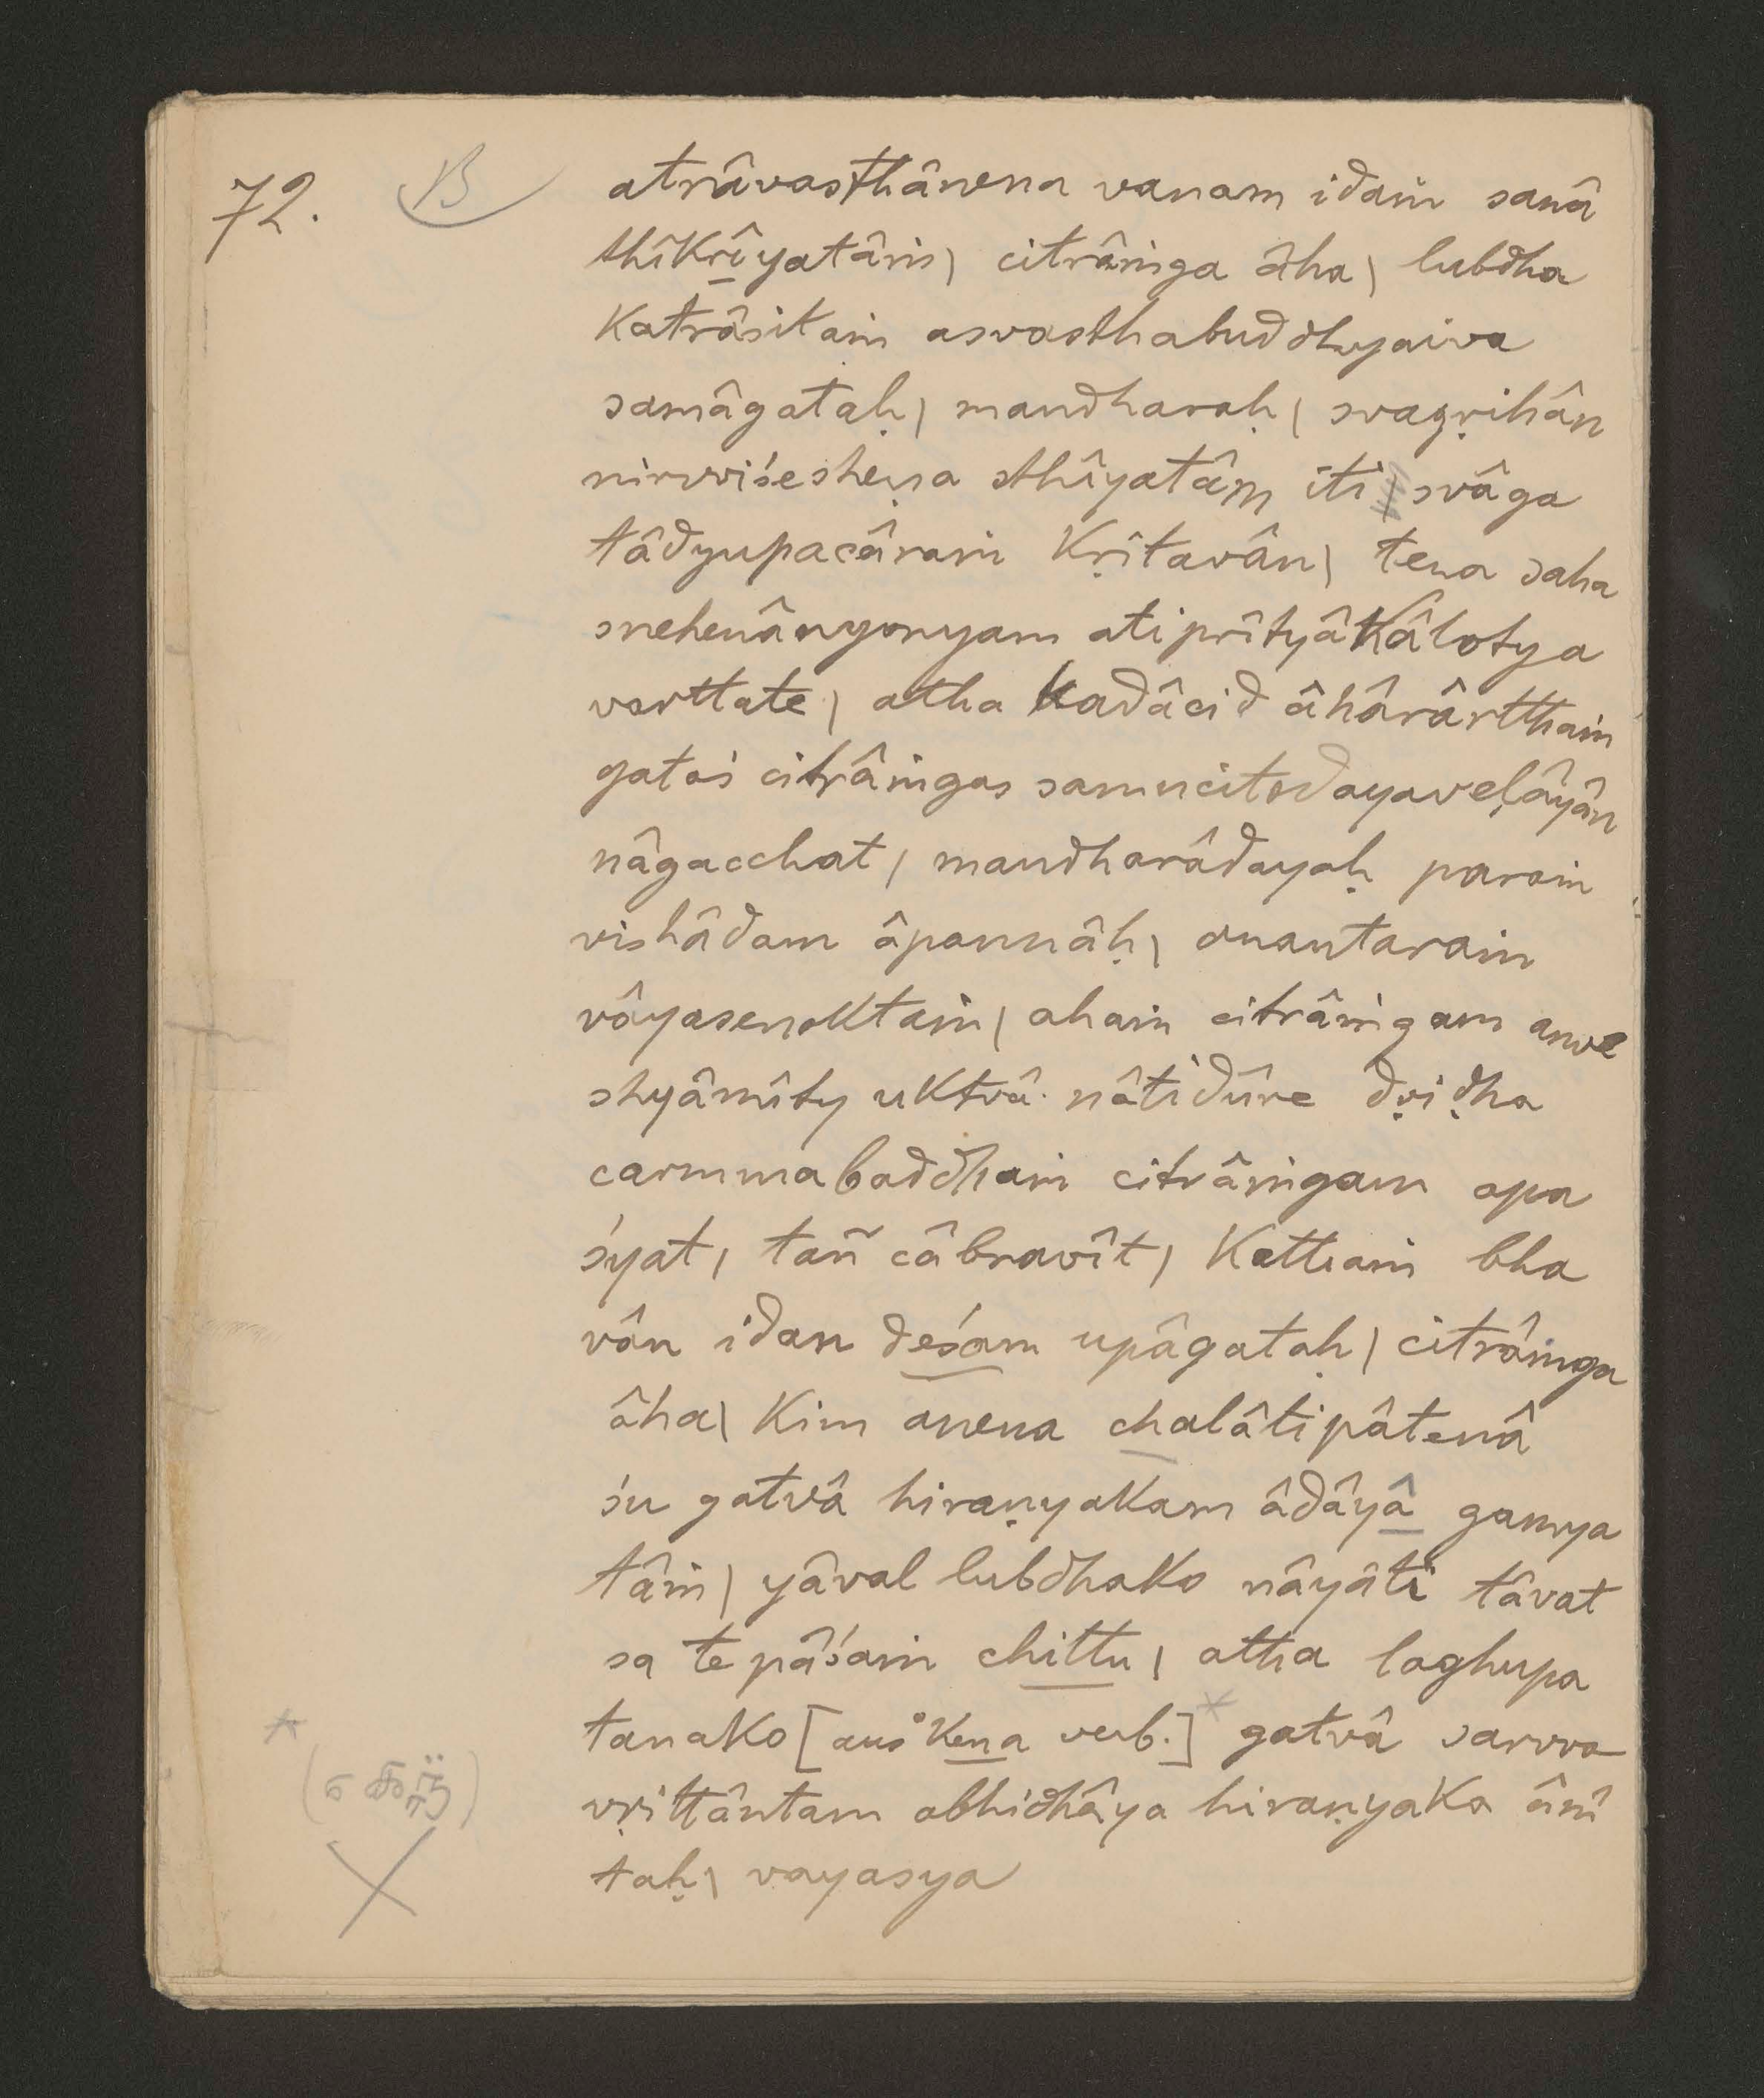 72. B atrâvasthânena vanam idaṁ sanâ
thîkrîyatâṁ | citrâṁga âha | lubdha
katrâsitaṁ asvasthabuddhyaiva
samâgataḥ | mandharaḥ | svagṛihân
nirvviśesheṇa sthîyatâm iti | svâga
tâdyupacâraṁ kṛitavân | tena saha
snehenânyonyam atiprîtyâ kâlotya
varttate | atha kadâcid âhârârtthaṁ
gataś citrâṁgas samucitodayaveḷâyân
nâgacchat | mandharâdayaḥ paraṁ
vishâdam âpannâḥ | anantaraṁ
vâyasenoktaṁ | ahaṁ citrâṁgam anve
shyâmîty uktvâ nâtidûre dṛiḍha
carmmabaddhaṁ citrâṁgam apa
śyat | tañ câbravît | kathaṁ bha
vân idan deśam upâgataḥ | citrâṁga
âha | kim anena chalâtipâtenâ
śu gatvâ hiraṇyakam âdâyâ gamya
tâṁ | yâval lubdhako nâyâti tâvat
sa te pâśaṁ chittu | atha laghupa
tanako [aus °kena verb.]* gatvâ sarvva
vṛittântam abhidhâya hiraṇyaka ânî
taḥ | vayasya
*